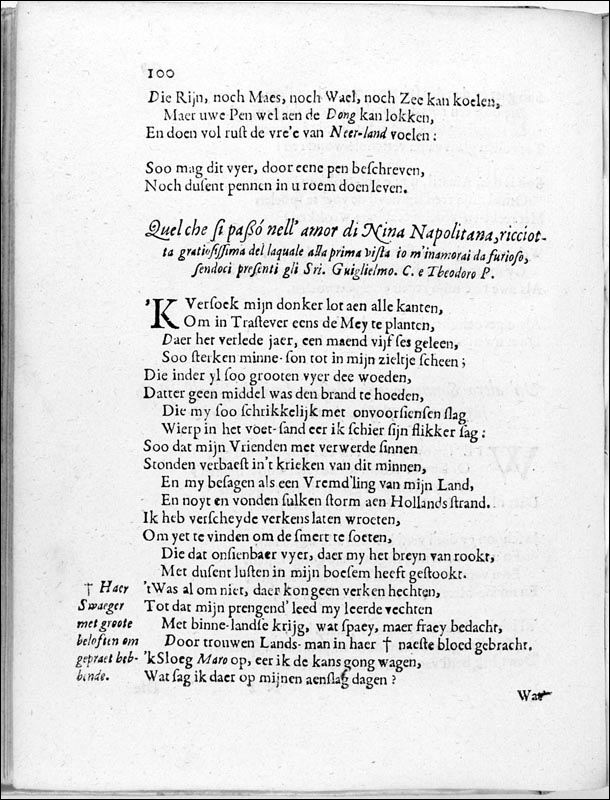 100
Die Rijn, noch Maes, noch Wael, noch Zee kan koelen,
Maer uwe Pen wel aen de Dong kan lokken,
En doen vol rust de vre'e van Neer-land voelen:
Soo mag dit vyer, door eene pen beschreven,
Noch dusent pennen in u roem doen leven.
Quel che si passó nell' amor di Nina Napolitana, ricciot-
ta gratiosissima del laquale alla prima vista io m'inamorai da furioso,
sendoci presenti gli Sri. Guiglielmo. C. e Theodoro P.
'K Versoek mijn donker lot aen alle kanten,
Om in Trastever eens de Mey te planten,
Daer het verlede jaer, een maend vijf ses geleen,
Soo sterken minne-son tot in mijn zieltje scheen;
Die inder yl soo grooten vyer dee woeden,
Datter geen middel was den brand te hoeden,
Die my soo schrikkelijk met onvoorsiensen slag
Wierp in het voet-sand eer ik schier sijn flikker sag:
Soo dat mijn Vrienden met verwerde sinnen
Stonden verbaest in't krieken van dit minnen,
En my besagen als een Vremd'ling van mijn Land,
En noyt en vonden sulken storm aen Hollands strand.
Ik heb verscheyde verkens laten wroeten,
Om yet te vinden om de smert te soeten,
Die dat onsienbaer vyer, daer my het breyn van rookt,
Met dusent lusten in mijn boesem heeft gestookt.
'tWas al om niet, daer kon geen verken hechten,
Tot dat mijn prengend' leed my leerde vechten
Met binne-landse krijg, wat spaey, maer fraey bedacht,
Door trouwen Lands-man in haer † naeste bloed gebracht.
'kSloeg Maro op, eer ik de kans gong wagen,
Wat sag ik daer op mijnen aenslag dagen?
† Haer
Swaeger
met groote
beloften om
gepraet heb-
bende.
Wat